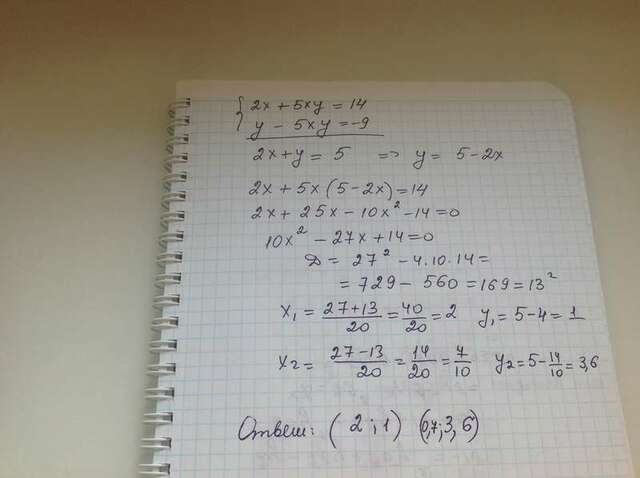 { 2x + 5xy = 14
y - 5xy = -9
2x + y = 5 => y = 5 - 2x
2x + 5x(5 - 2x) = 14
2x + 25x - 10x² - 14 = 0
10x² - 27x + 14 = 0
D = 27² - 4·10·14 =
= 729 - 560 = 169 = 13²
x₁ = (27+13)/20 = 40/20 = 2 y₁ = 5 - 4 = 1
x₂ = (27-13)/20 = 14/20 = 7/10 y₂ = 5 - 14/10 = 3,6
Ответ: (2; 1) (0,7; 3,6)